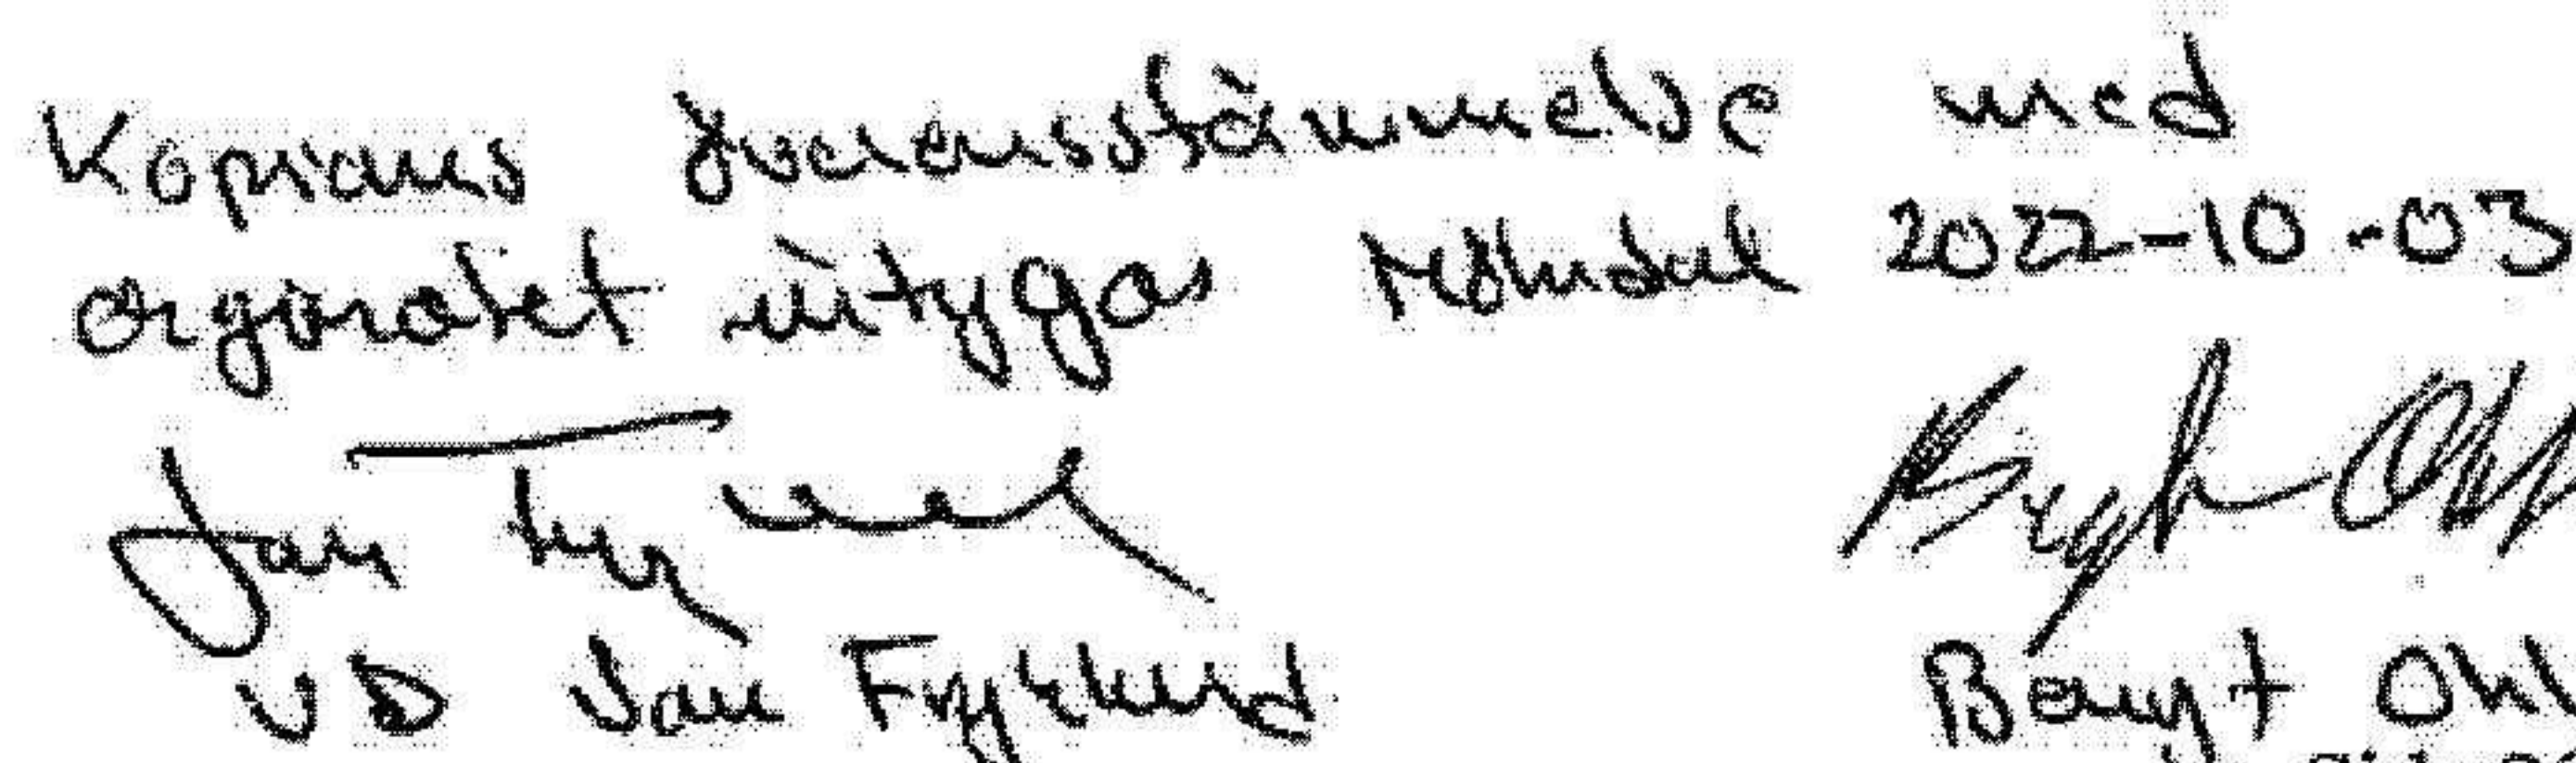 Kopians överensstämmelse med
orginalet intygas Mölndal 2022-10-03
Jan
VD Jan Fryklund
Bengt
Bengt